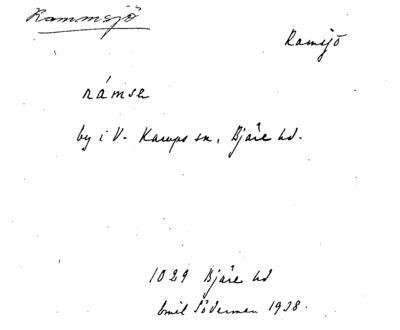 Rammsjö
Ramsjö
rámsa
by i V. Karups sn, Bjäre hd.
1029 Bjäre hd
Emil Söderman 1938.